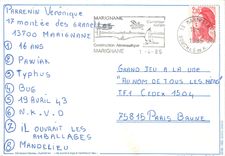 PARRENIN Véronique
17 montée des granettes
13700 MARIGNANE
1) 16 ANS
2) PAWIAK
3) TYPHUS
4) BUG
5) 19 AVRIL 43
6) N.K.V.D
7) IL OUVRAIT LES EMBALLAGES
8) MANDELIEU
MARIGNANE
Construction Aéronautique
MARIGNANE
GRAND JEU A LA UNE
"AU NOM DE TOUS LES MIENS"
TF1 CEDEX 1504
75815 PARIS BRUNE